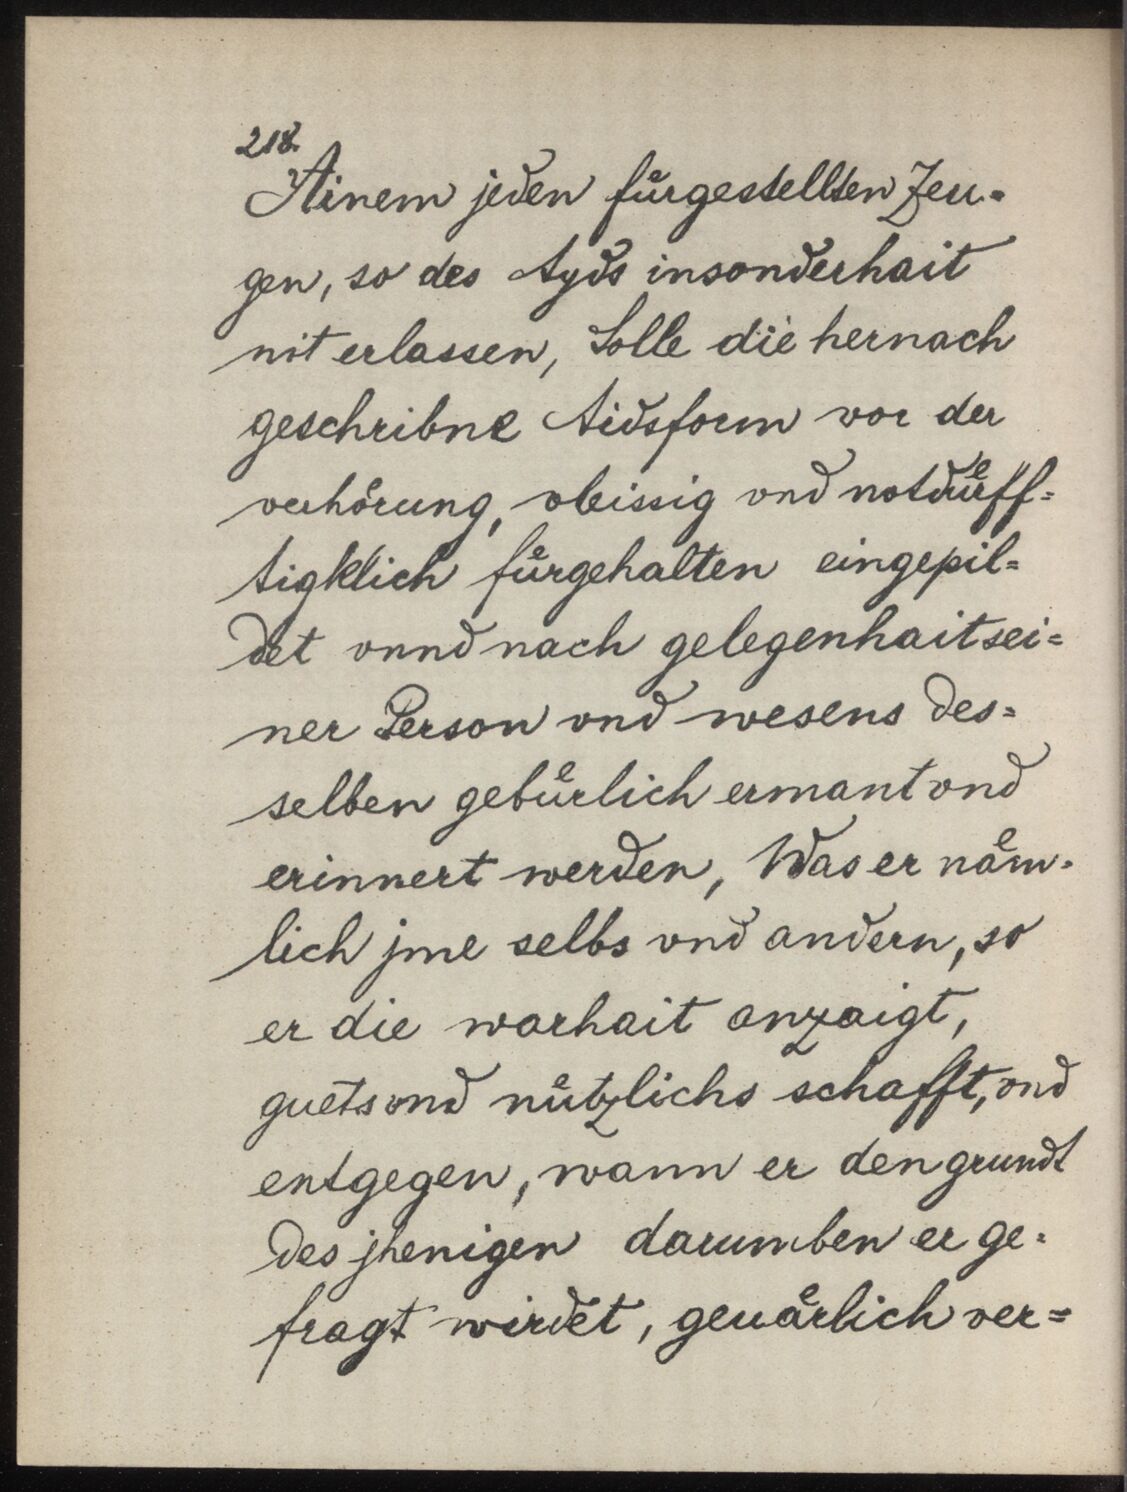 218.
Ainem jeden fuͤrgestellten Zeu=
gen, so des Ayds insonderhait
nit erlassen, Solle die hernach
geschribne Aidsform vor der
verhörung, vleissig vnd notduͤrff=
tigklich fuͤrgehalten eingepil=
det vnnd nach gelegenhait sei=
ner Person vnd wesens des=
selben gebuͤrlich ermant vnd
erinnert werden, Was er naͤm=
lich jme selbs vnd andern, so
er die warhait anzaigt,
guets vnd nuͤtzlichs schafft, vnd
entgegen, wann er den grundt
des jhenigen darumben er ge=
fragt wirdet, geuaͤrlich ver=